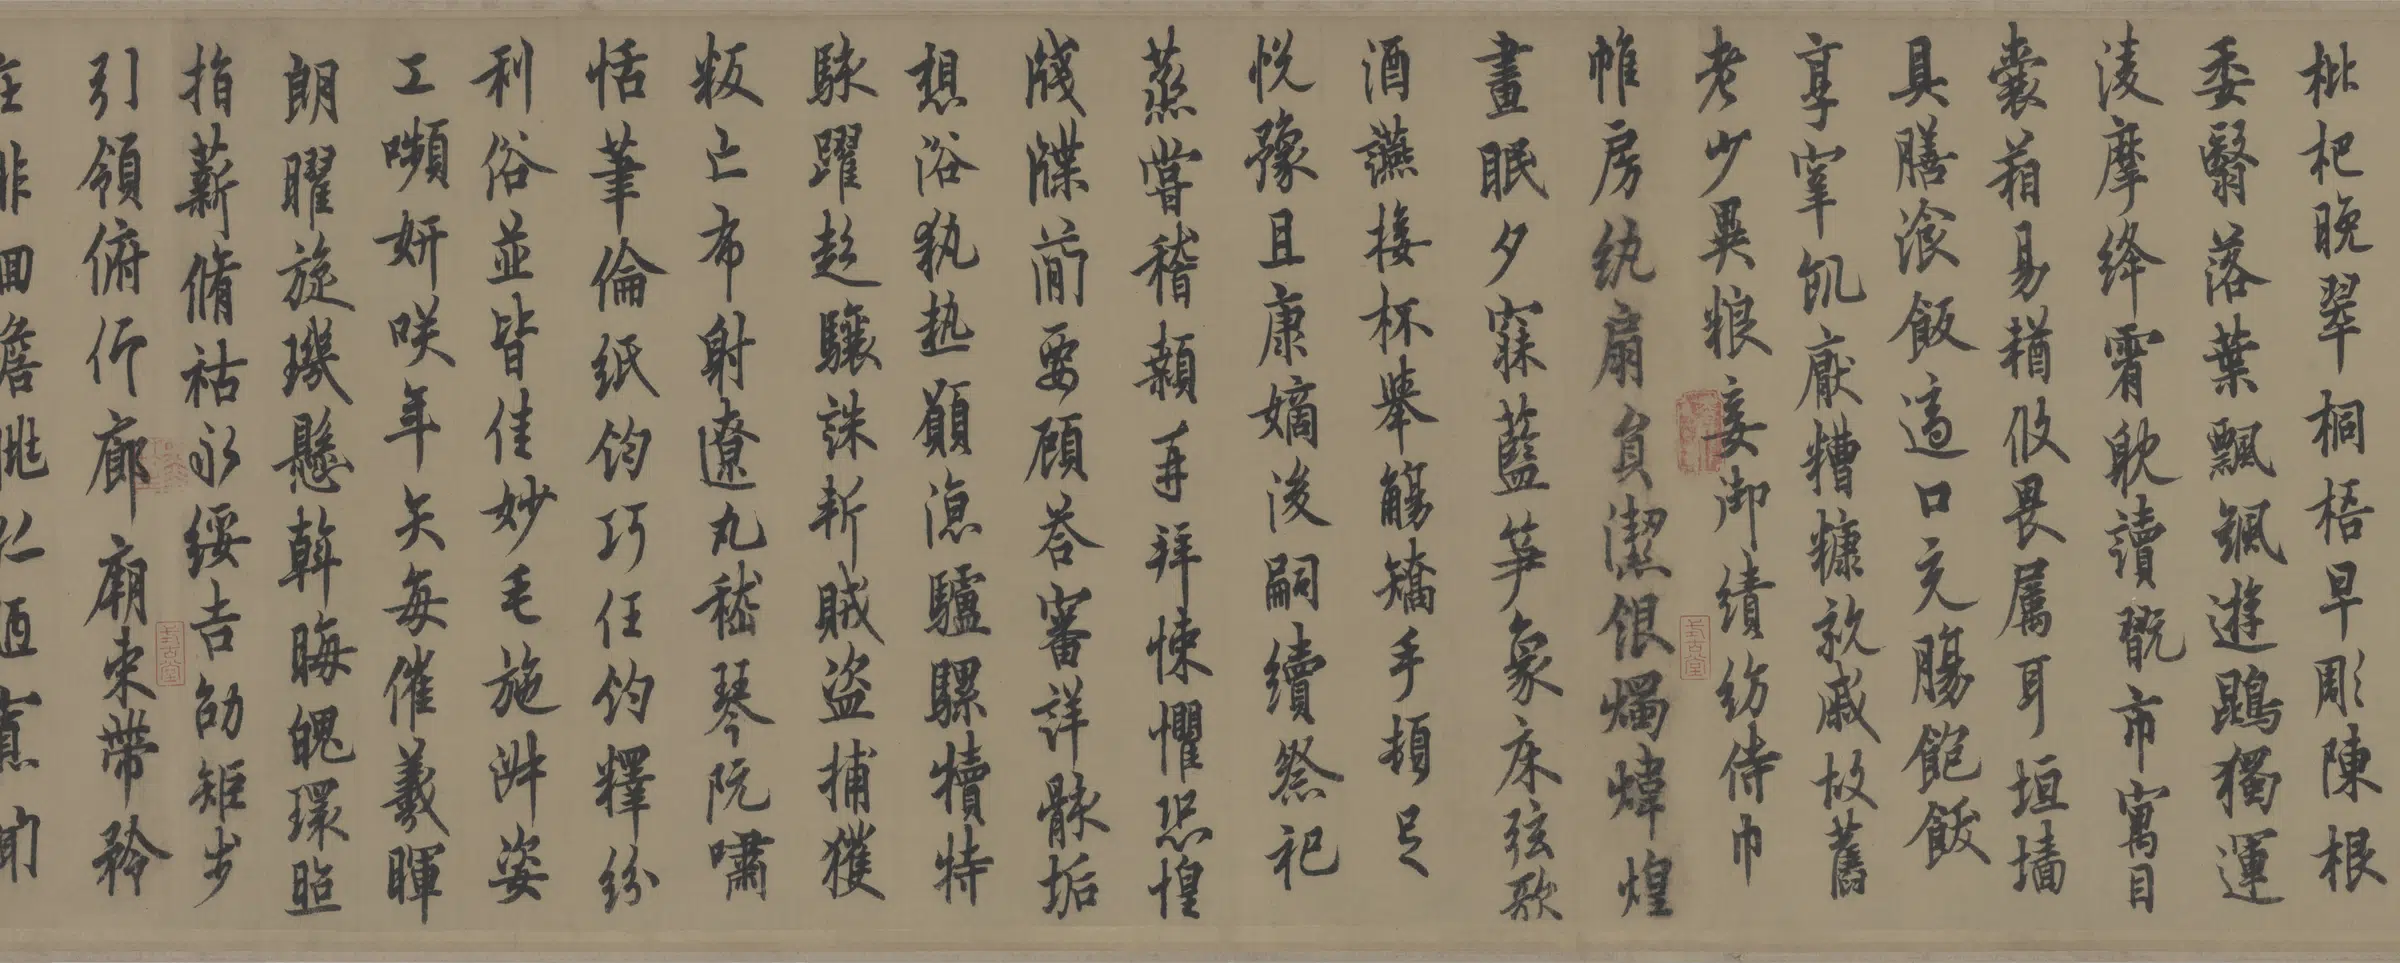 枇杷晚翠桐梧早彫陳根
委翳落葉飄颻遊鵾獨運
淩摩絳霄耽讀翫市寓目
囊葙易輶攸畏属耳垣墻
具膳飡飯適口充腸飽飫
享宰飢厭糟糠戚故舊
老少異粮妾御績紡侍巾
帷房紈扇員潔銀燭煒煌
晝眠夕寐藍笋象床弦歌
酒讌接杯舉觴矯手頓足
悅豫且康嫡後嗣續祭祀
蒸嘗稽顙再拜悚懼恐惶
牋牒簡要顧荅審詳骸垢
想浴執熱願涼驢騾犢特
駭躍超驤誅斬賊盜捕獲
叛亡布射遼丸嵇琴阮嘯
恬筆倫紙鈞巧任釣釋紛
利俗並皆佳妙毛施淑姿
工嚬妍咲年矢每催羲暉
朗曜旋璣懸斡晦魄環照
指薪脩祜永綏吉劭矩步
引領俯仰廊廟束帶矜
庄徘徊瞻眺孤陋寡聞
式古堂
式古堂